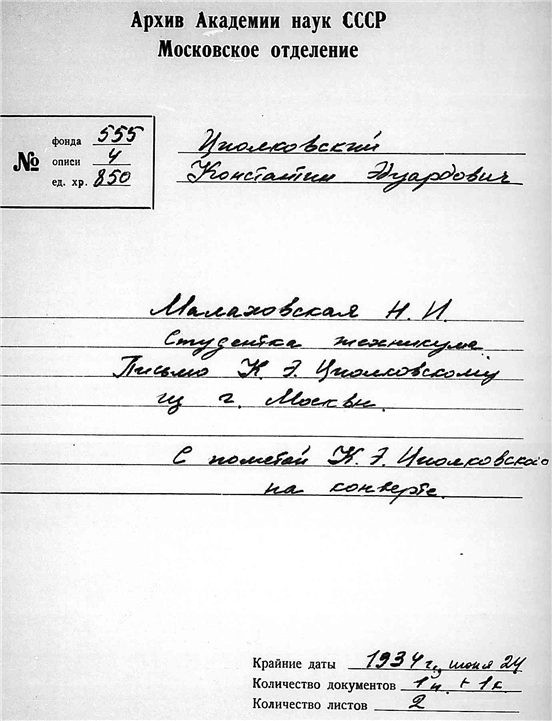 Архив Академии наук СССР
Московское отделение
№
фонда 555
описи 4
ед. хр. 850
Циолковский
Константин Эдуардович
Малаховская Н. И.
Студентка техникума
Письмо К. Э. Циолковскому
из г. Москвы.
С пометой К. Э. Циолковского
на конверте.
Крайние даты 1934 г., июня 24
Количество документов 1п. + 1к.
Количество листов 2